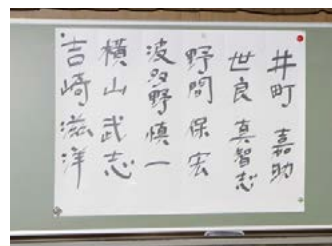 井町 嘉助
世良 真智志
野間 保宏
波多野慎一
横山武志
吉崎滋洋